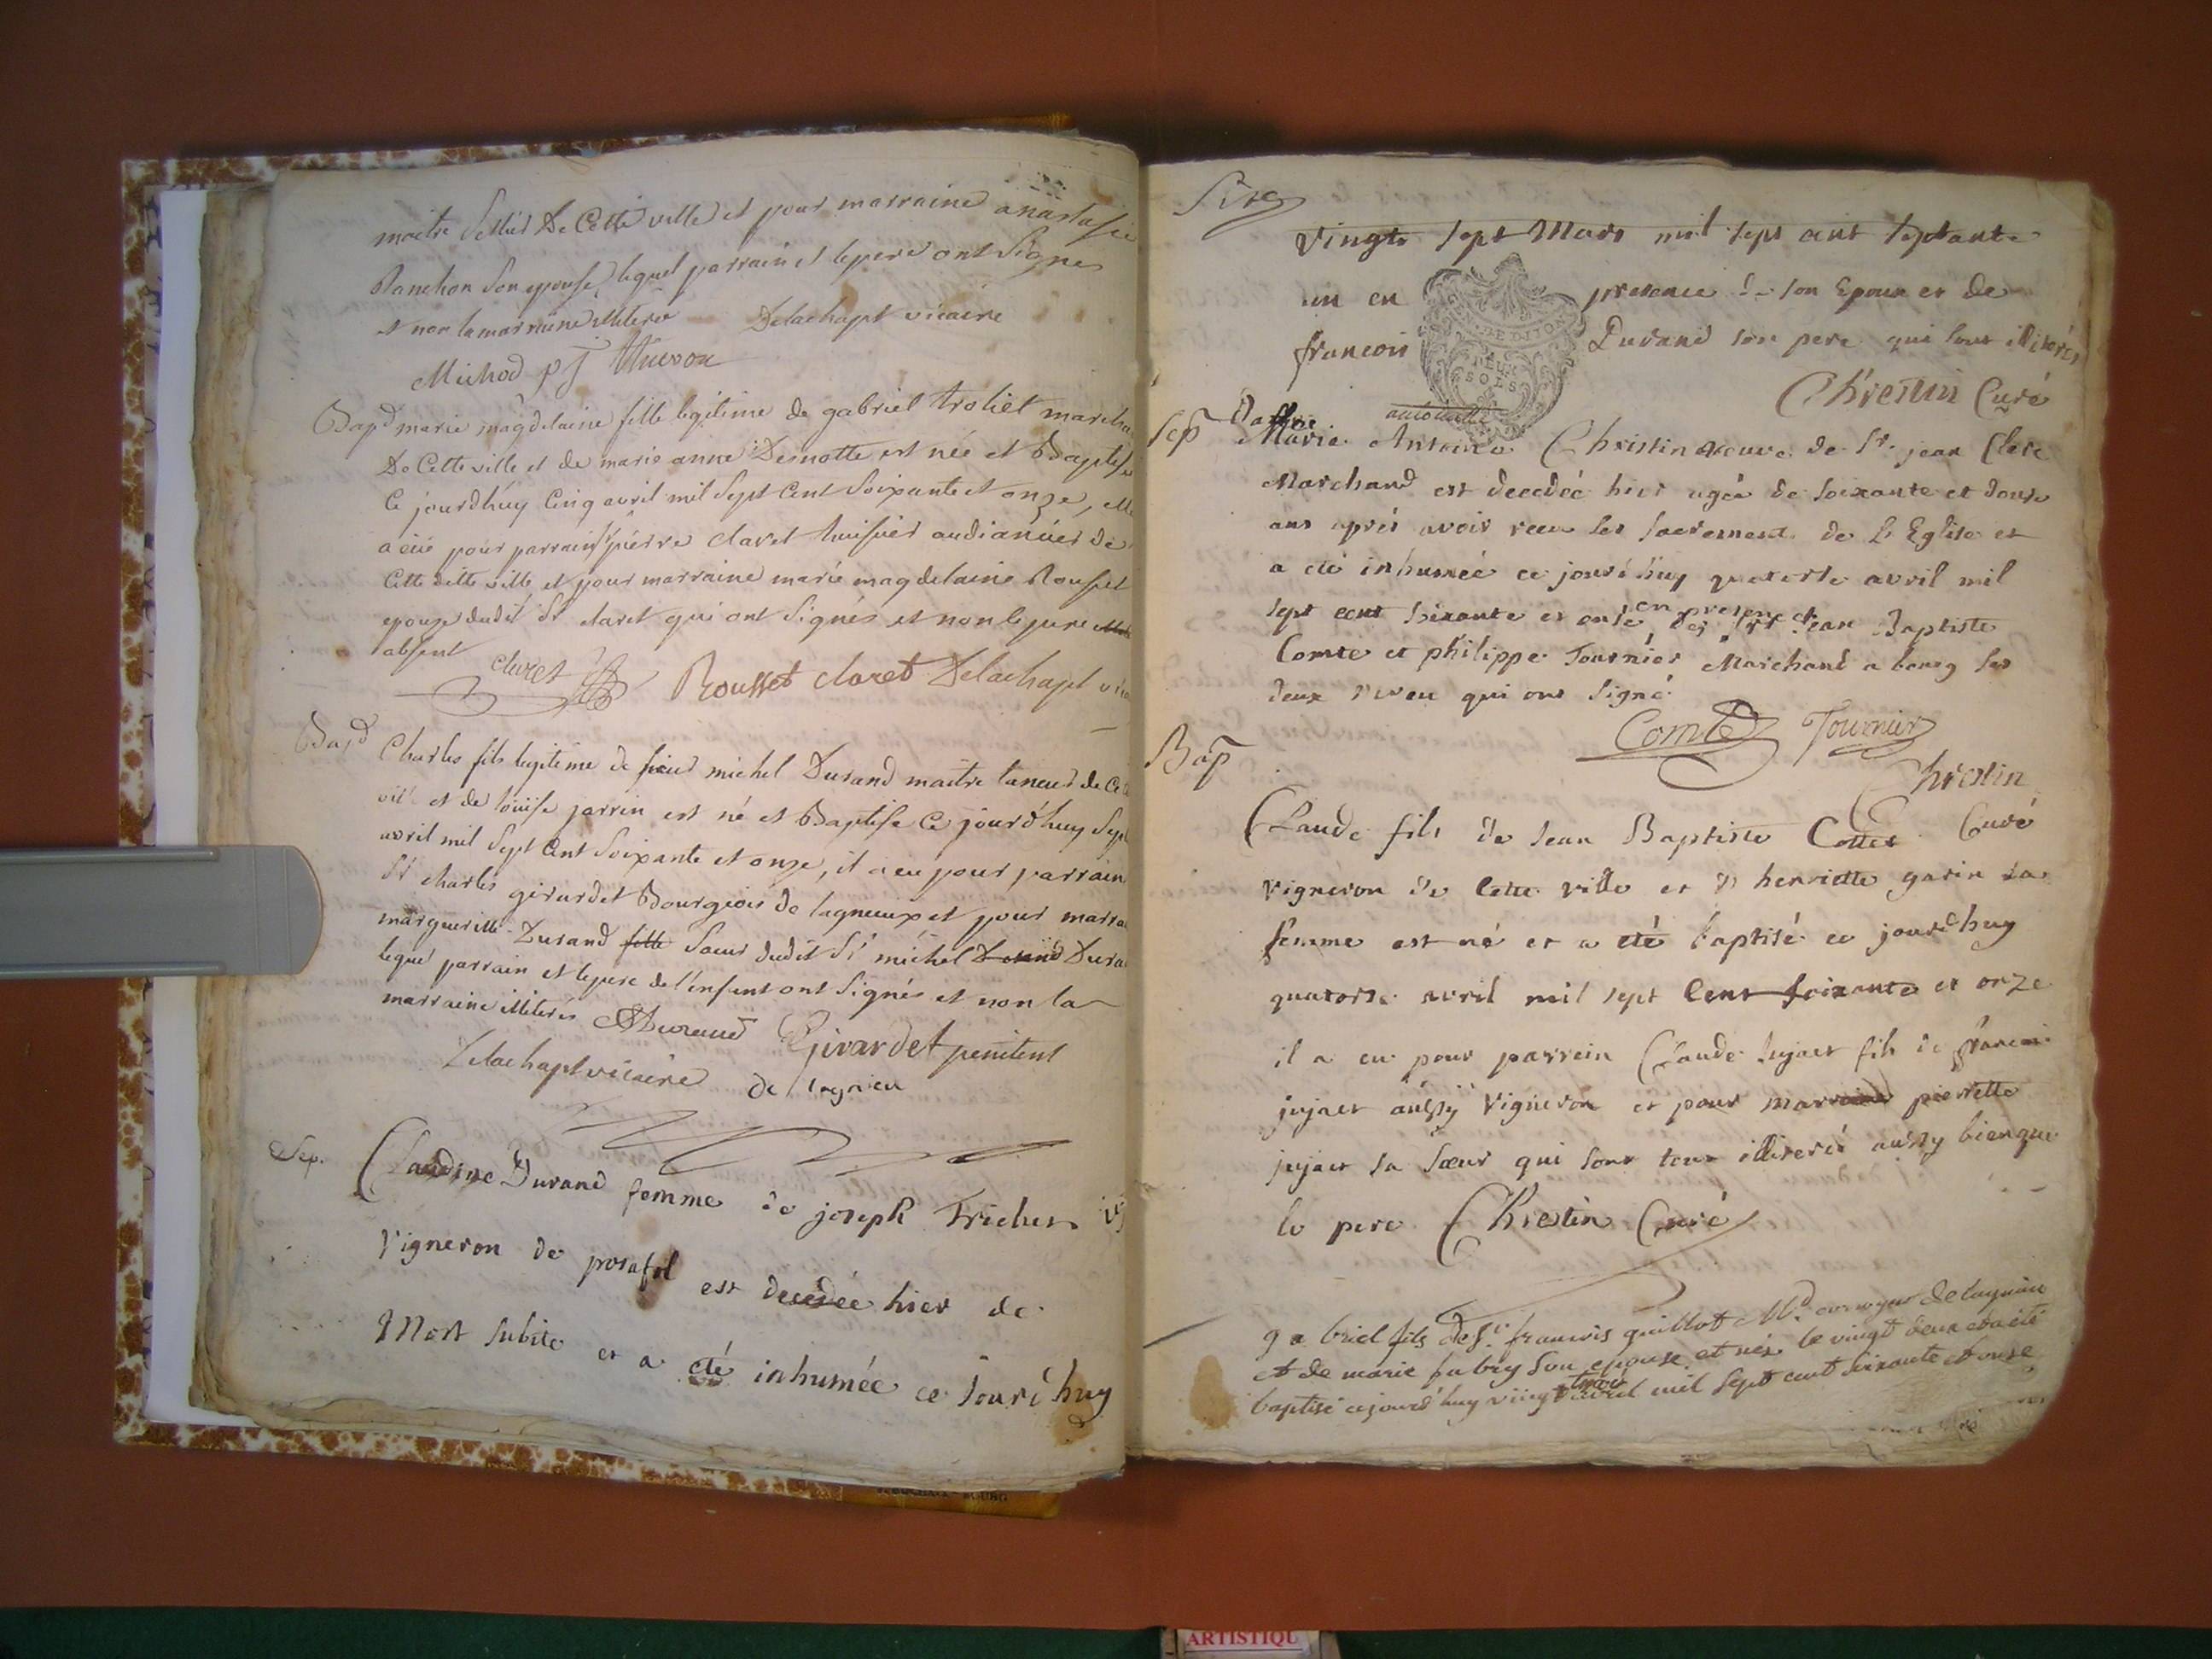 maitre Sellier De Cette ville et pour marraine anastasie
Panchon Son epouse, lequel parrain et le pere ont Signes
et non la marraine illiteree Delachapt vicaire
Michod
Bapt marie magdelaine fille legitime de gabriel troliet marcha
De Cette ville et de marie anne Desnotte est née et Baptisé
Ce jourdhuy Cinq avril mil Sept Cent Soixante et onze, elle
a eüe pour parrain Sr pierre claret huissier audiancier de
Cette ditte ville et pour marraine marie magdelaine Rousset
epouse dudit Sr claret qui ont Signés et non le pere
absent
claret Rousset claret Delachapt vica
Bapt Charles fils legitime de sieur michel Durand maitre taneur de Cette
ville et de loüise jarrin est né et Baptise Ce jourd'huy Sept
avril mil Sept Cent Soixante et onze, il a eu pour parrain
Sr charles girardet Bourgeois de lagneux et pour marra
margueritte Durand fille Sœur dudit Sr michel Durand Dura
lequel parrain et le pere de l'enfant ont Signés et non la
marraine illiterés Durand Girardet penitent
Delachapt vicaire de lagnieu
Sep. Claudine Durand femme de joseph Tricher
Vigneron de posafol est decedée hier de
Mort subite et a eté inhumée ce Jourd'huy
Vingt sept Mars mil sept cent septante
un en presence de son Epoux et de
francois Durand son pere qui sont illiterés
DE DIJON
DEUX
SOLS
Chrestin Curé
Sep Marie Antoine Christin veuve de Sr jean Clerc
Marchand est decedée hier agée de soixante et douse
ans aprés avoir recu les sacrements de L'Eglise et
a eté inhumée ce jourd'huy quatorse avril mil
sept cent soixante et onse en presence des Srs Jean Baptiste
Comte et philippe Tournier Marchand a bourg ses
deux neveu qui ont signé
Comte Tournier
Chrestin
Curé
Bap
Claude fils de Jean Baptiste Cottet
Vigneron de Cette ville et d'henriette garin sa
femme est né et a eté baptisé ce jourd'huy
quatorse avril mil sept Cent soixante et onze
il a eu pour parrein Claude Jujat fils de francois
jujat aussy Vigneron et pour marraine pierrette
jujat sa sœur qui sont tous illiterés aussy bien que
le pere Chrestin Curé
gabriel fils de Sr francois guillot Md de lagnieu
et de marie fabry son epouse et nés le vingt deux et a eté
baptisé cejourd'huy vingt trois avril mil sept cent soixante et onse
ARTISTIQU